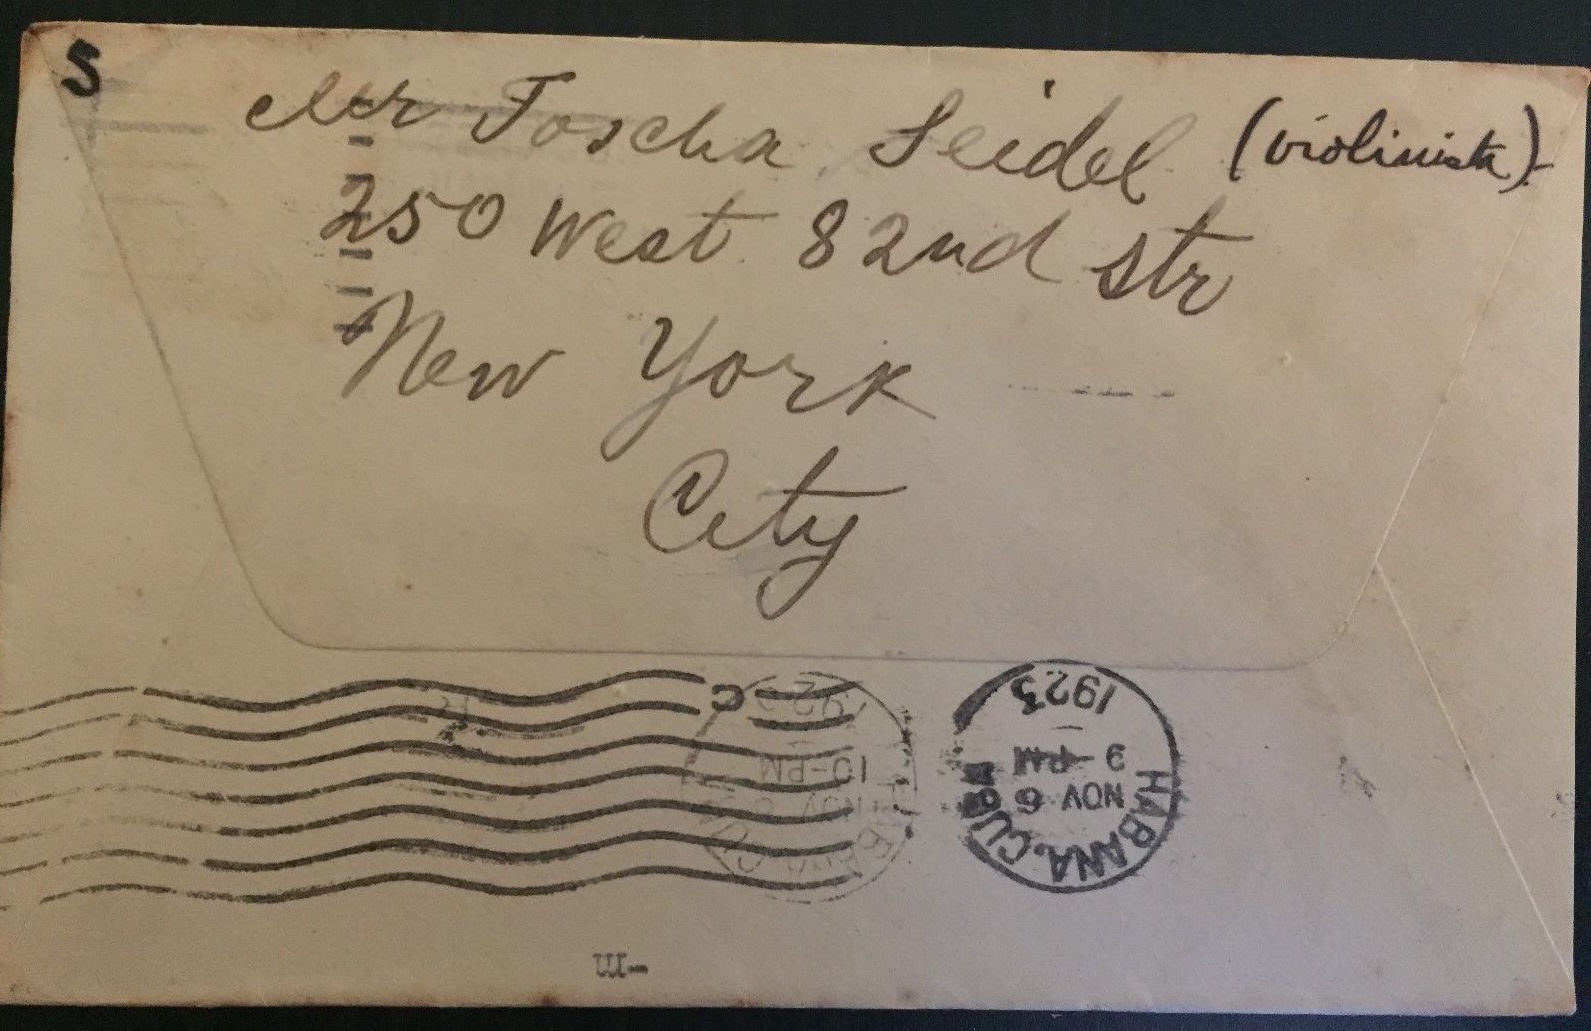 S
Mr Toscha Seidel (violinista)
250 West 82nd Str
New York
City
C
HABANA, CUBA
NOV 6
9 - PM
1923
HABANA, CU
NOV 6
10-PM
192
m-